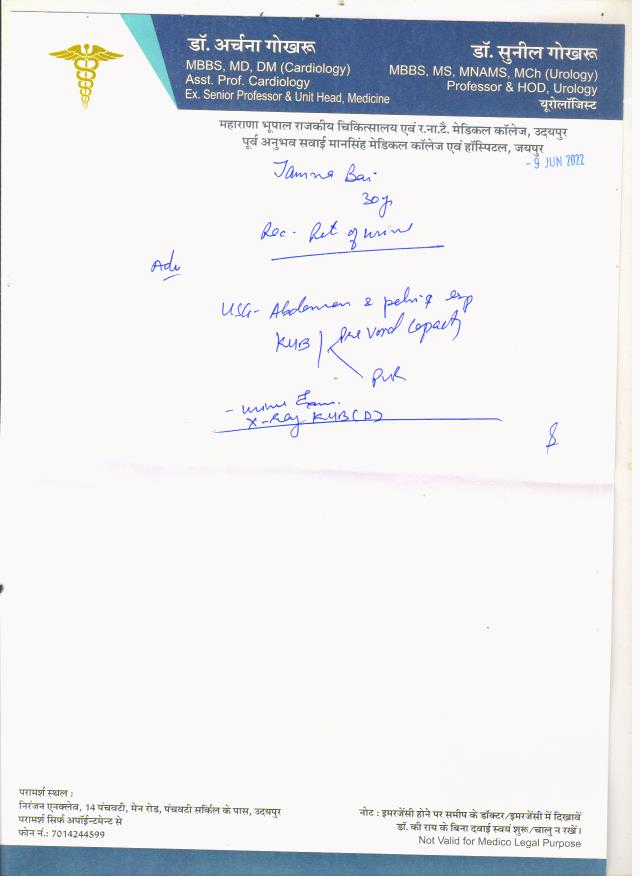 डॉ. अर्चना गोखरू
MBBS, MD, DM (Cardiology)
Asst. Prof. Cardiology
Ex. Senior Professor & Unit Head, Medicine
डॉ. सुनील गोखरू
MBBS, MS, MNAMS, MCh (Urology)
Professor & HOD, Urology
यूरोलॉजिस्ट
महाराणा भूपाल राजकीय चिकित्सालय एवं र.ना.टै. मेडिकल कॉलेज, उदयपुर
पूर्व अनुभव सवाई मानसिंह मेडिकल कॉलेज एवं हॉस्पिटल, जयपुर
- 9 JUN 2022
Jamna Bai
30y
Rec - Ret of urine
Adv
USG - Abdomen & pelvis esp
KUB Pre Void Capacity
PVR
- Urine Exam.
X-Ray KUB (D)
परामर्श स्थल :
निरंजन एनक्लेव, 14 पंचवटी, मेन रोड, पंचवटी सर्किल के पास, उदयपुर
परामर्श सिर्फ अपॉईन्टमेन्ट से
फोन नं.: 7014244599
नोट : इमरजेंसी होने पर समीप के डॉक्टर/इमरजेंसी में दिखावें
डॉ. की राय के बिना दवाई स्वयं शुरू/चालु न रखें।
Not Valid for Medico Legal Purpose